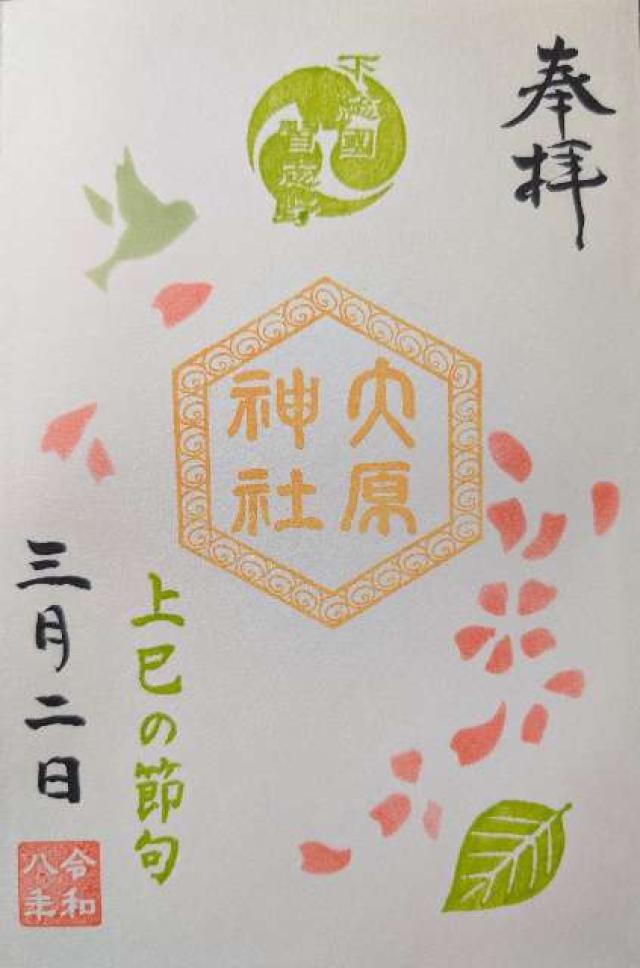 奉拝
下総國
習志野
大原
神社
上巳の節句
三月二日
令和
八年